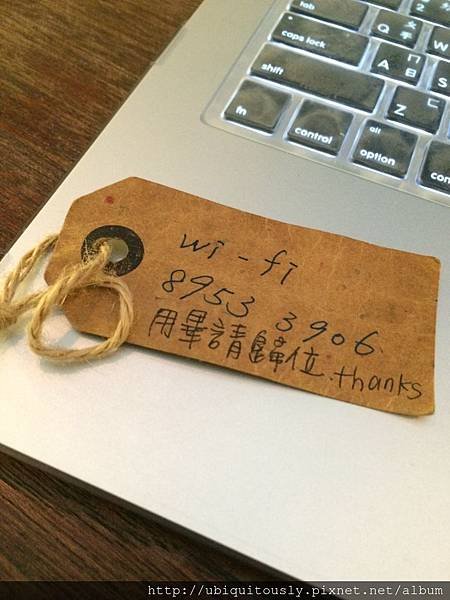 tab
Q ㄆ 手
W
2
caps lock
A ㄇ 日
S
shift
Z ㄈ
fn
control
alt
option
com
wi-fi
8953 3906
用畢請歸位.thanks
http://ubiquitously.pixnet.net/album